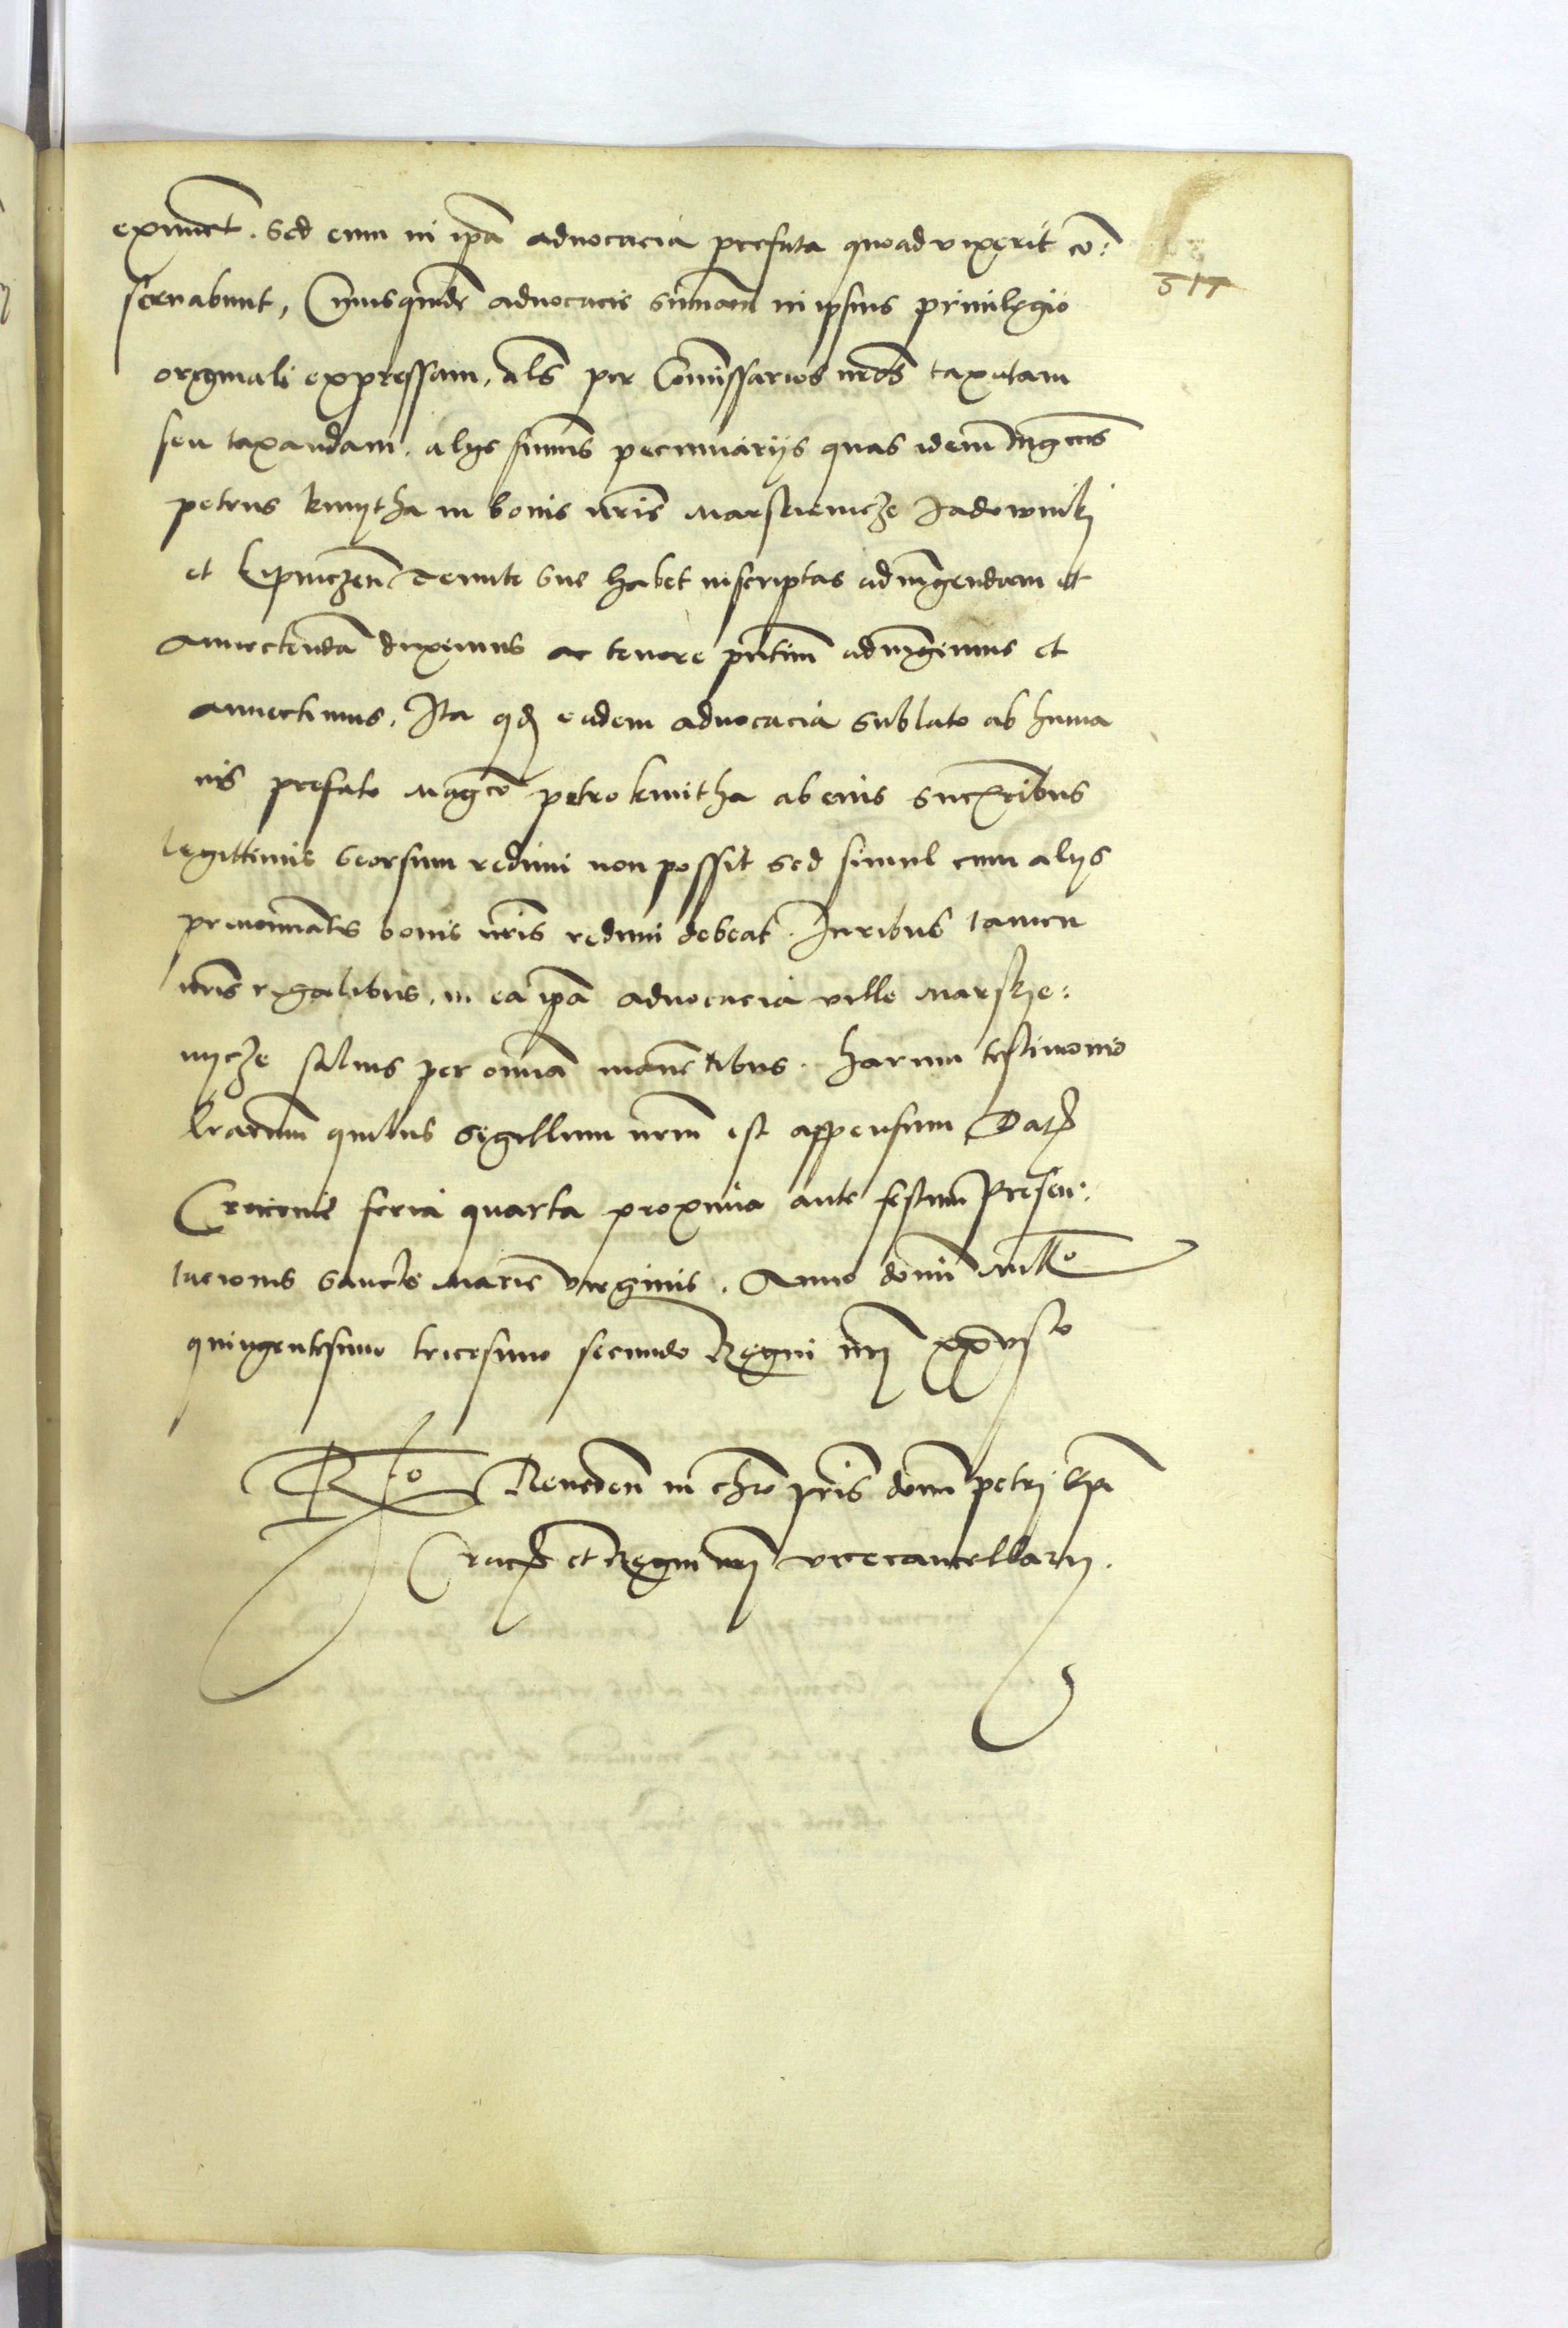 eximet. Sed eum in ipa advocacia prefata quoad vixerit co:
servabunt, Cuius quide advocacie sumam in ipsius privilegio
originali expressam, als per Comissarios nros taxatam
seu taxandam, alys sumis pecuniariis quas idem Mgcus
petrus kmytha in bonis nris Marschenicze Jadowniki
et Lipniczen Tenute sue habet inscriptas adiungendam et
annectenda duximus ac tenore pntium adiungimus et
annectimus, Ita qd eadem advocacia sublato ab huma
nis prefato Magco petro kmitha ab eius sucribus
legittimis seorsum redimi non possit sed simul cum alys
prenominatis bonis nris redimi debeat. Juribus tamen
nris regalibus, in ea ipa advocacia ville Marszye:
nycze salvis per omnia manentibus. Harum testimonio
lrarum quibus sigillum nrm est appensum Dat
Cracovie feria quarta proxima ante festum Presen:
tacionis sancte Marie virginis. Anno domini Millo
quingentesimo tricesimo secundo Regni nri xxvisto
Rlo Reverden in chro pris domi petri Epi
Crac et Regni nri vicecancellarij.
517